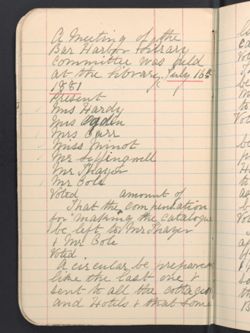 A Meeting of the
Bar Harbor Library
Committee was held
at the library, July 16
1881
Present
Mrs Hardy
Miss Ogden
Mrs Carr
Miss Minot
Mr
Mr Thayer
Mr Cole
Voted amount of
That the compensation
for making the catalogue
be left to Mr Thayer
& Mr Cole
Voted
A circular be prepared
like the last one &
sent to all the cottages
and Hotels & that some